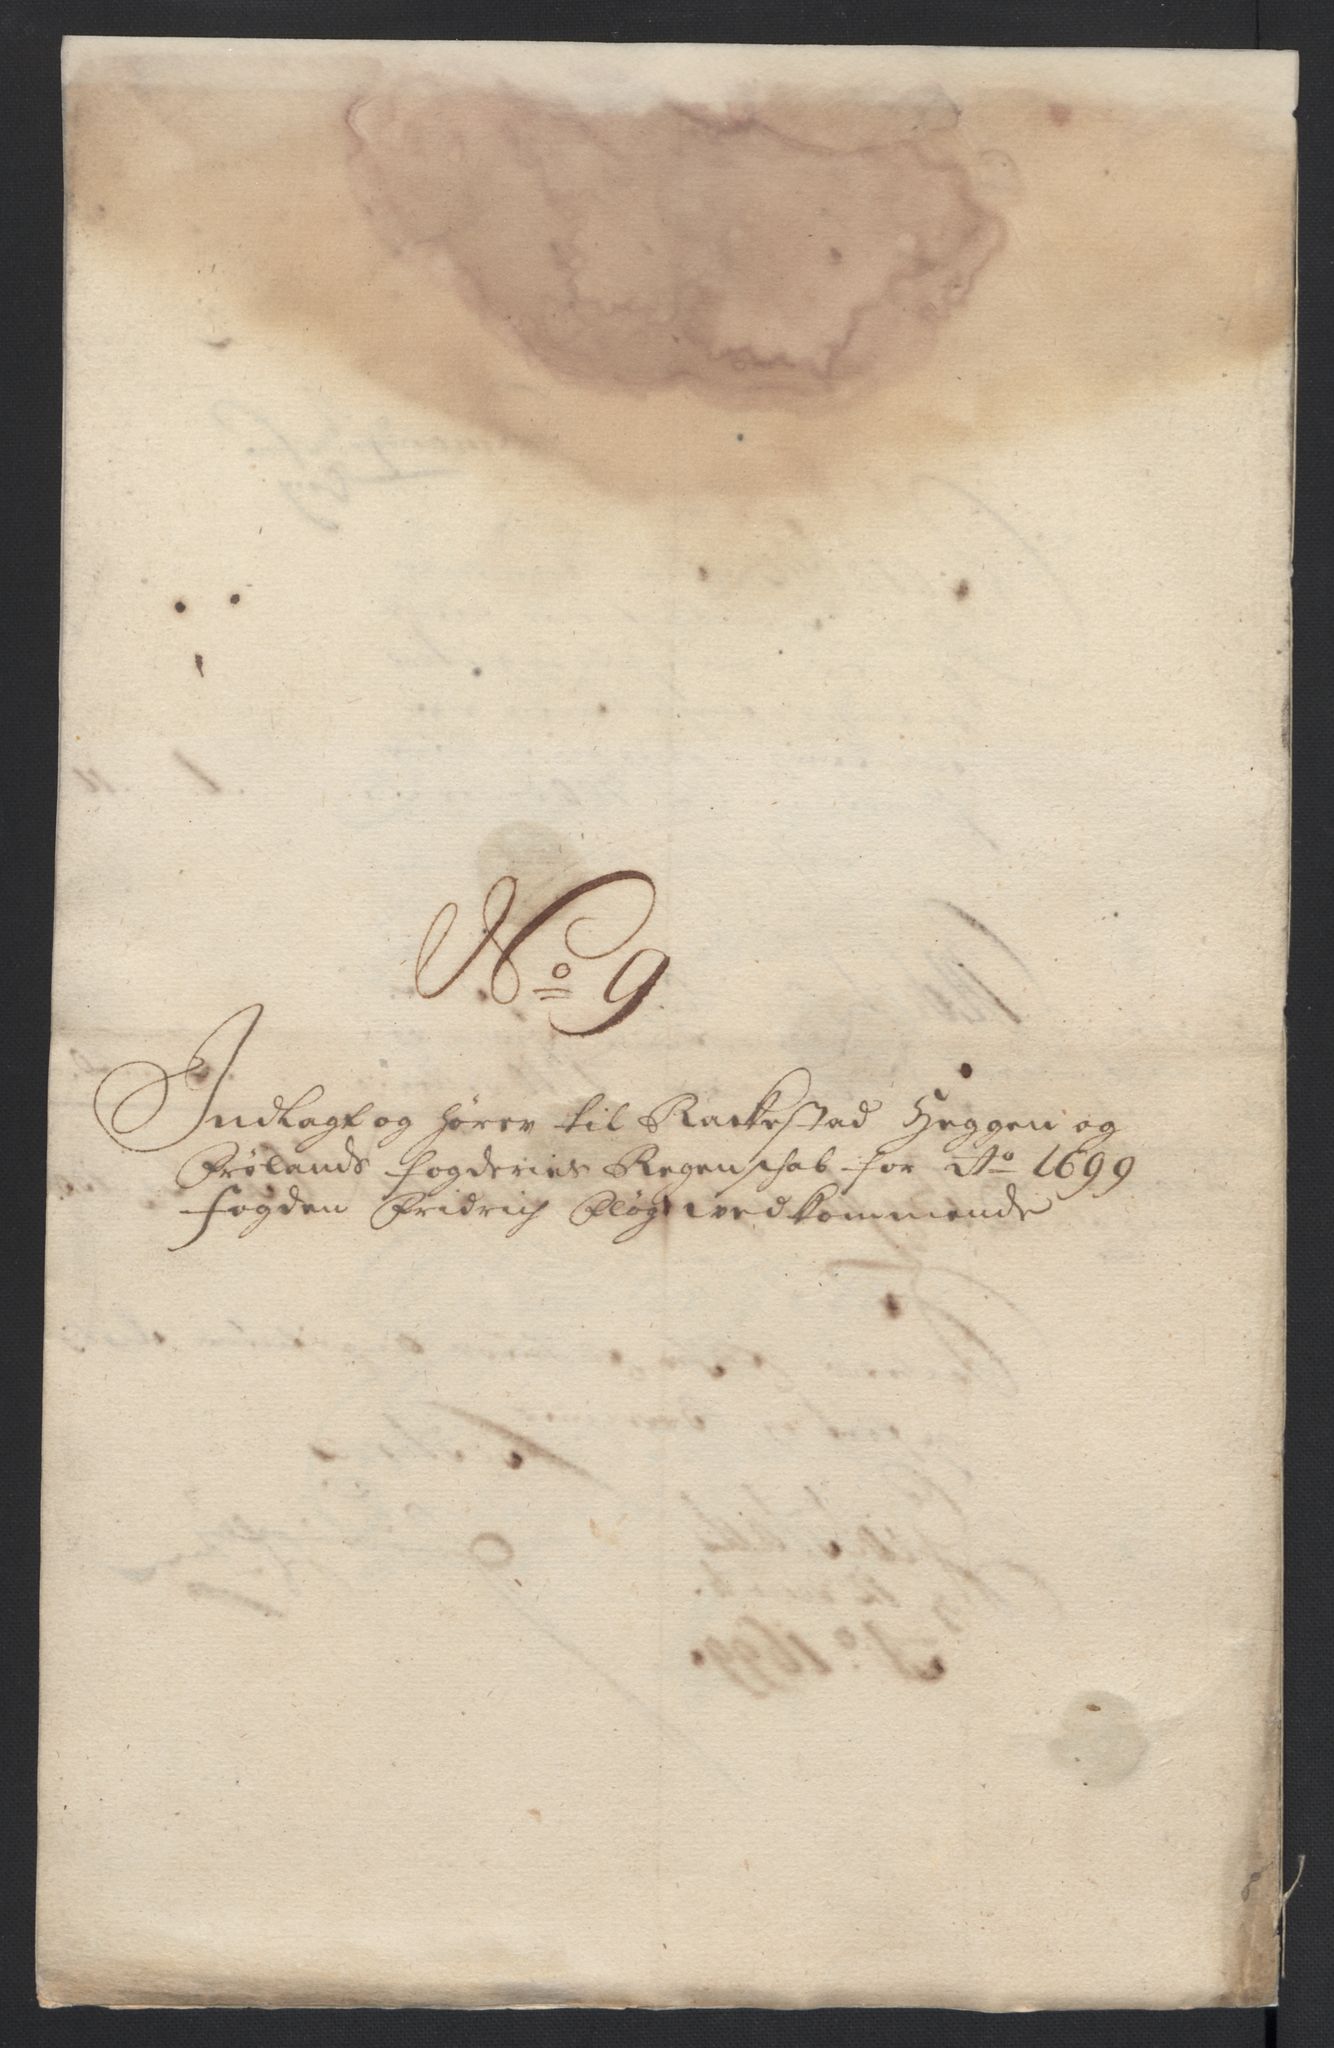 No 9
Indlagt og hörer til Rackestad Heggen og
Frølands fogderies Regenschab for Ao 1699
fogden Fridrich Pløg vedkommende